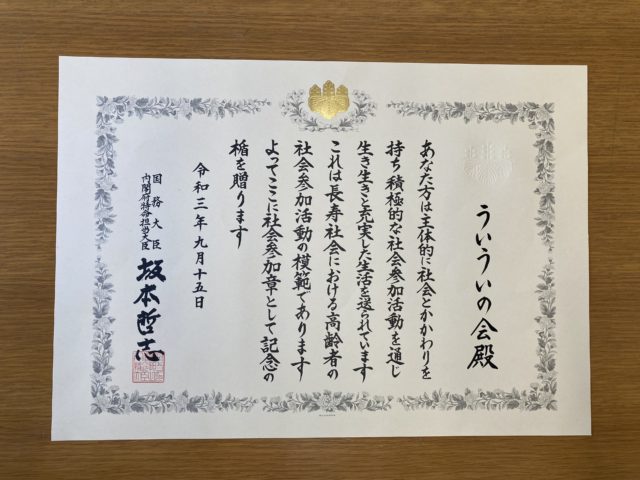 ういういの会殿
あなた方は主体的に社会とかかわりを
持ち積極的な社会参加活動を通じ
生き生きと充実した生活を送られています
これは長寿社会における高齢者の
社会参加活動の模範であります
よってここに社会参加章として記念の
楯を贈ります
令和三年九月十五日
国務大臣
内閣府特命担当大臣
坂本哲志